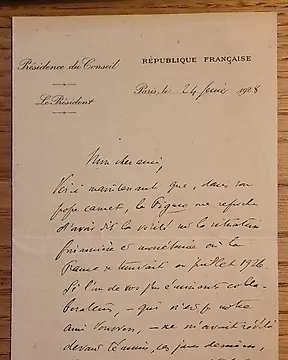 Présidence du Conseil
RÉPUBLIQUE FRANÇAISE
Le Président
Paris, le 24 juin 1928
Mon cher ami,
Voici maintenant que, dans son
propre carnet, le Figaro me reproche
d'avoir dit la vérité sur la situation
financière et monétaire où la
France se trouvait en juillet 1926.
Si l'un de vos plus éminents colla-
borateurs, – qui n'est pas notre
ami – ne m'avait révélé
devant témoins, ces jours derniers,